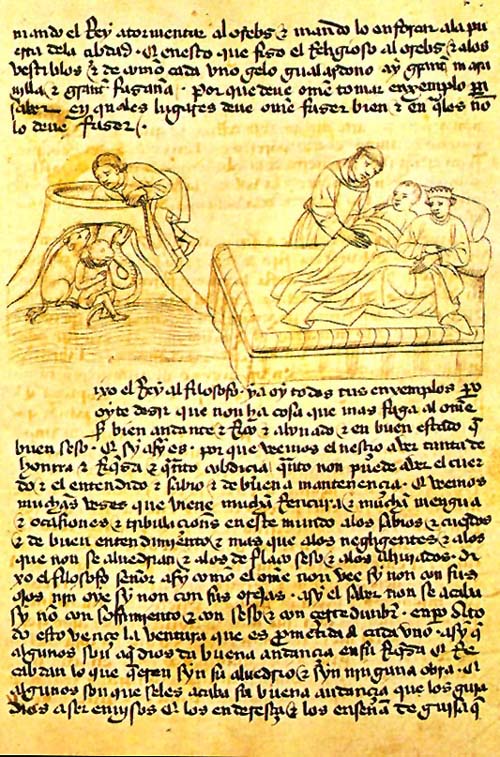 mando el Rey atormentar al orebs & mando lo enforcar ala pu
erta dela cibdad . & enesto que fizo el Religioso al orebs & alos
vestiblos & de commo cada vno gelo gualardono ay grant mara
uilla & grant fazaña . por que deue ome tomar enxemplo
saber en quales lugares deue ome fazer bien & en qles no
lo deue fazer .
ixo el Rey al filosofo . ya oy todos tus enxemplos pero
oyte dezir que non ha cosa que mas faga al ome
bien andante & Rico & abondado & en buen estado q
buen seso . & sy asy es . por que veemos el nescio aver tanta de
honrra & Riqza & quanto cobdicia quanto non puede aver el cuer
do & el entendido & sabio & de buena mantenencia . & veemos
muchas vezes que viene mucha Rencura & mucha mengua
& ocasiones & tribulacions en este mundo alos sabios & cuerdos
& de buen entendimiento & mas que alos negligentes & alos
que non se aluedrian & alos de flaco seso & alos . di
xo el filosofo señor asy como el ome non vee sy non con sus
ojos nin oye sy non con sus orejas . asy el saber non se acaba
sy no con sofrimiento & con seso & con certedunbre . enpero
do esto vençe la ventura que es prometida a cada vno . asy q
algunos son aq dios da buena andancia en su Riqza & Re
cabdan lo que qeren syn su aluedrio & syn ninguna obra . &
algunos son que seles acaba su buena andancia que los guia
dios a ser enuisos & los enderesça & los enseña de guisa q